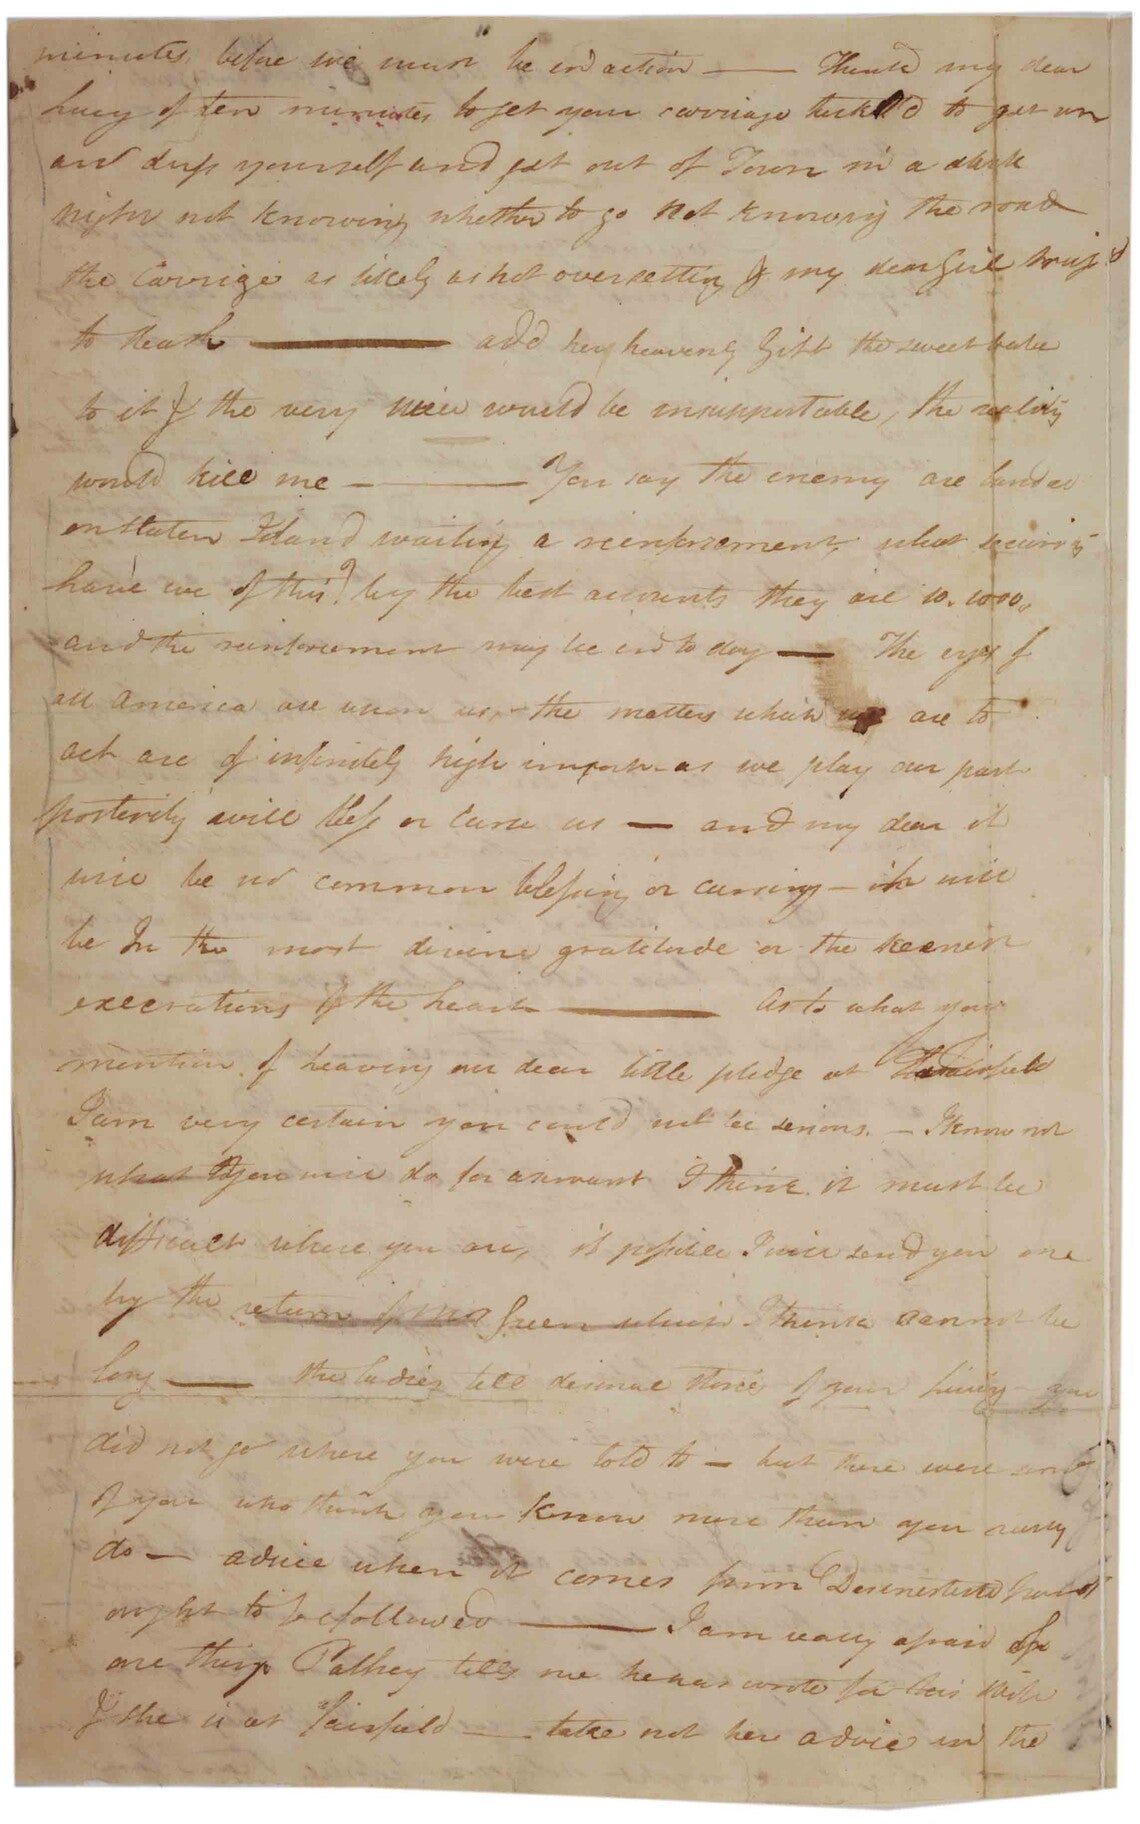 minutes before we must be in action — Think my dear
Lucy of ten minutes to get your carriage tackl'd to get up
and dress yourself and get out of Town in a dark
night not knowing whither to go not knowing the road
the Carrige as likely as not oversetting & my dear Girl
to death — add her heavens Gift the sweet babe
to it & the very idea would be insupportable, the reality
would kill me — You say the enemy are landed
on Staten Island waiting a reinforcement, what security
have we of this? by the best accounts they are 10,000,
and the reinforcement may be in to day — The eyes of
all America are upon us, — the matters which we are to
act are of infinitely high import — as we play our part
posterity will bless or curse us — and my dear it
will be no common blessing or cursing — it will
be In the most divine gratitude or the keenest
execrations of the heart — As to what you
mention of leaving our dear little pledge at Fairfield
I am very certain you could not be serious. — I know not
what you will do for a servant I think it must be
difficult where you are, if possible I will send you one
by the return of Mrs Green which I think cannot be
long — the ladies tell dismal stories of your living — you
did not go where you were told to — but there were some
of you who think you know more than you really
do — advice when it comes from Disinterested
ought to be followed — I am really afraid
are there Palfrey tells me he has wrote for his Wife
& she is at Fairfield — take not her advice in the